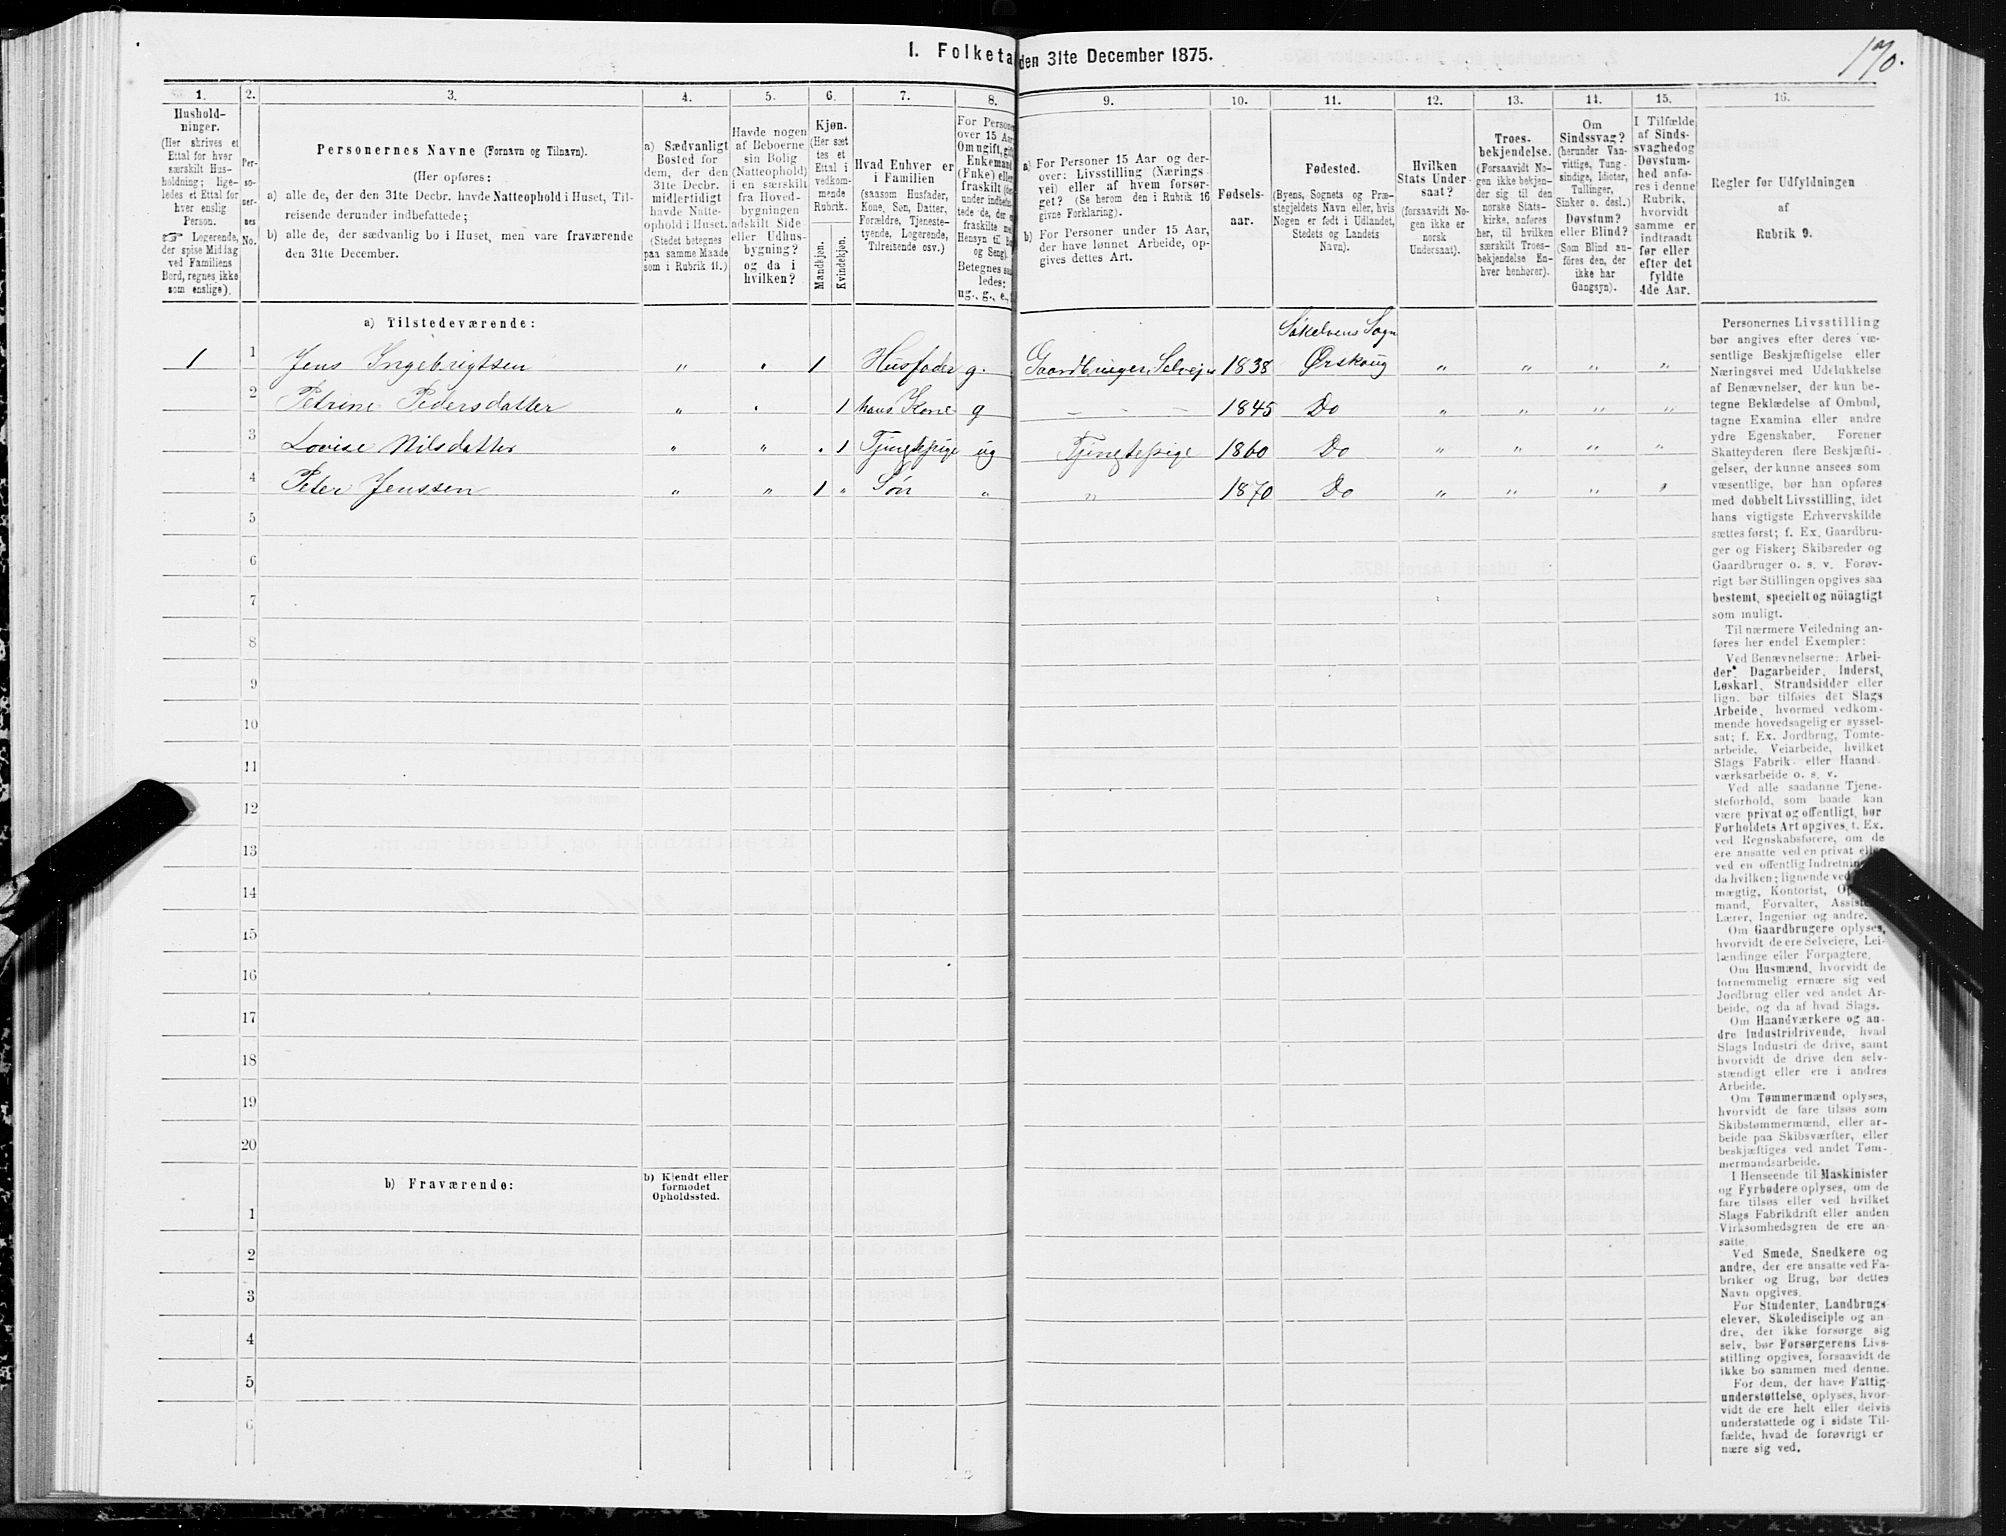 170.
I. Folketa den 31te December 1875.
1. 2. 3. 4. 5. 6. 7. 8. 9. 10. 11. 12. 13. 14. 15. 16.
Hushold-
ninger.
(Her skrives et
Ettal for hver
særskilt Hus-
holdning; lige-
ledes et Ettal for
hver enslig
Person.
☞ Logerende,
der spise Middag
ved Familiens
Bord, regnes ikke
som enslige).
Per-
so-
ner-
nes
No.
Personernes Navne (Fornavn og Tilnavn).
(Her opføres:
a) alle de, der den 31te Decbr. havde Natteophold i Huset, Til-
reisende derunder indbefattede;
b) alle de, der sædvanlig bo i Huset, men vare fraværende
den 31te December.
a) Sædvanligt
Bosted for
dem, der den
31te Decbr.
midlertidigt
havde Natte-
ophold i Huset.
(Stedet betegnes
paa samme Maade
som i Rubrik 11.)
Havde nogen
af Beboerne
sin Bolig
(Natteophold)
i en særskilt
fra Hoved-
bygningen
adskilt Side-
eller Udhus-
bygning?
og da i
hvilken?
Kjøn.
(Her sæt
tes et
Ettal i
vedkom-
mende
Rubrik.
Mandkjøn.
Kvindekjøn.
Hvad Enhver er
i Familien
(saasom Husfader,
Kone, Søn, Datter,
Forældre, Tjeneste-
tyende, Logerende,
Tilreisende osv.)
For Persone
over 15 Aar
Om ugift, gift
Enkemand
(Enke) eller
fraskilt
under indbefat-
tede de, der
fraskilte med
Hensyn til Bo
og Seng).
Betegnes saa-
ledes:
ug., g., e.,
a) For Personer 15 Aar og der-
over: Livsstilling (Nærings
vei) eller af hvem forsør-
get? (Se herom den i Rubrik 16
givne Forklaring).
b) For Personer under 15 Aar,
der have lønnet Arbeide, op-
gives dettes Art.
Fødsels-
aar.
Fødested.
(Byens, Sognets og Præ-
stegjeldets Navn eller, hvis
Nogen er født i Udlandet,
Stedets og Landets
Navn).
Hvilken
Stats Under
saat?
(forsaavidt No-
gen ikke er
norsk
Undersaat).
Troes-
bekjendelse.
(Forsaavidt No-
gen ikke bekjen-
der sig til den
norske Stats-
kirke, anføres
her, til hvilken
særskilt Troes-
bekjendelse En-
hver henhører).
Om
Sindssvag?
(herunder Van-
vittige, Tung-
sindige, Idioter,
Tullinger,
Sinker o. desl.)
Døvstum?
eller Blind?
(Som Blind an-
føres den, der
ikke har
Gangsyn).
I Tilfælde
af Sinds-
svaghed og
Døvstum-
hed anfø-
res i denne
Rubrik,
hvorvidt
samme er
indtraadt
før eller
efter det
fyldte
4de Aar.
Regler for Udfyldningen
af
Rubrik 9.
a) Tilstedeværende:
Søkelvens Sogn
1 1 Jens Ingebrigtsen " " 1 Husfader g. Gaardbruger, Selvejer 1838 Ørskoug " " " "
2 Petrine Pedersdatter " " 1 hans Kone g – – – 1845 Do " " " "
3 Lovise Nilsdatter " " " 1 Tjenstepige ug Tjenstepige 1860 Do " " " "
4 Peter Jenssen " " 1 " Søn " " 1870 Do " " " "
5
6
7
8
9
10
11
12
13
14
15
16
17
18
19
20
b) Fraværende:
b) Kjendt eller
formodet
Opholdssted.
1
2
3
4
5
6
Personernes Livsstilling
bør angives efter deres væ-
sentlige Beskjæftigelse eller
Næringsvei med Udelukkelse
af Benævnelser, der kun be-
tegne Beklædelse af Ombud,
tagne Examina eller andre
ydre Egenskaber. Forener
Skatteyderen flere Beskjæfti-
gelser, der kunne ansees som
væsentlige, bør han opføres
med dobbelt Livsstilling, idet
hans vigtigste Erhvervskilde
sættes først; f. Ex. Gaardbru-
ger og Fisker; Skibsreder og
Gaardbruger o. s. v. Forøv-
rigt bør Stillingen opgives saa
bestemt, specielt og nöiagtigt
som muligt.
Til nærmere Veiledning an-
føres her endel Exempler:
Ved Benævnelserne: Arbei-
der, Dagarbeider, Inderst,
Løskarl, Strandsidder eller
lign. bør tilføies det Slags
Arbeide, hvormed vedkom-
mende hovedsagelig er syssel-
sat; f. Ex. Jordbrug, Tomte-
arbeide, Veiarbeide, hvilket
Slags Fabrik- eller Haand-
værksarbeide o. s. v.
Ved alle saadanne Tjene-
steforhold, som baade kan
være privat og offentligt, bør
Forholdets Art opgives, t. Ex.
ved Regnskabsførere, om de
ere ansatte ved en privat eller
ved en offentlig Indretning
da hvilken; lignende ved
mægtig, Kontorist, Op
mand, Forvalter, Assiste
Lærer, Ingeniør og andre.
Om Gaardbrugere oplyses,
hvorvidt de ere Selveiere, Lei-
lændinge eller Forpagtere.
Om Husmænd, hvorvidt de
fornemmelig ernære sig ved
Jordbrug eller ved andet Ar-
beide, og da af hvad Slags.
Om Haandværkere og an-
dre Industridrivende, hvad
Slags Industri de drive, samt
hvorvidt de drive den selv-
stændigt eller ere i andres
Arbeide.
Om Tømmermænd oplyses,
hvorvidt de fare tilsøs som
Skibstømmermænd, eller ar-
beide paa Skibsværfter, eller
beskjæftiges ved andet Tøm-
mermandsarbeide.
I Henseende til Maskinister
og Fyrbødere oplyses, om de
fare tilsøs eller ved hvilket
Slags Fabrikdrift eller anden
Virksomhedsgren de ere an-
satte.
Ved Smede, Snedkere og
andre, der ere ansatte ved Fa-
briker og Brug, bør dettes
Navn opgives.
For Studenter, Landbrugs-
elever, Skoledisciple og an-
dre, der ikke forsørge sig
selv, bør Forsørgerens Livs-
stilling opgives, forsaavidt de
ikke bo sammen med denne.
For dem, der have Fattig-
understøttelse, oplyses, hvor-
vidt de ere helt eller delvis
understøttede og i sidste Til-
fælde, hvad de forøvrigt er
nære sig ved.